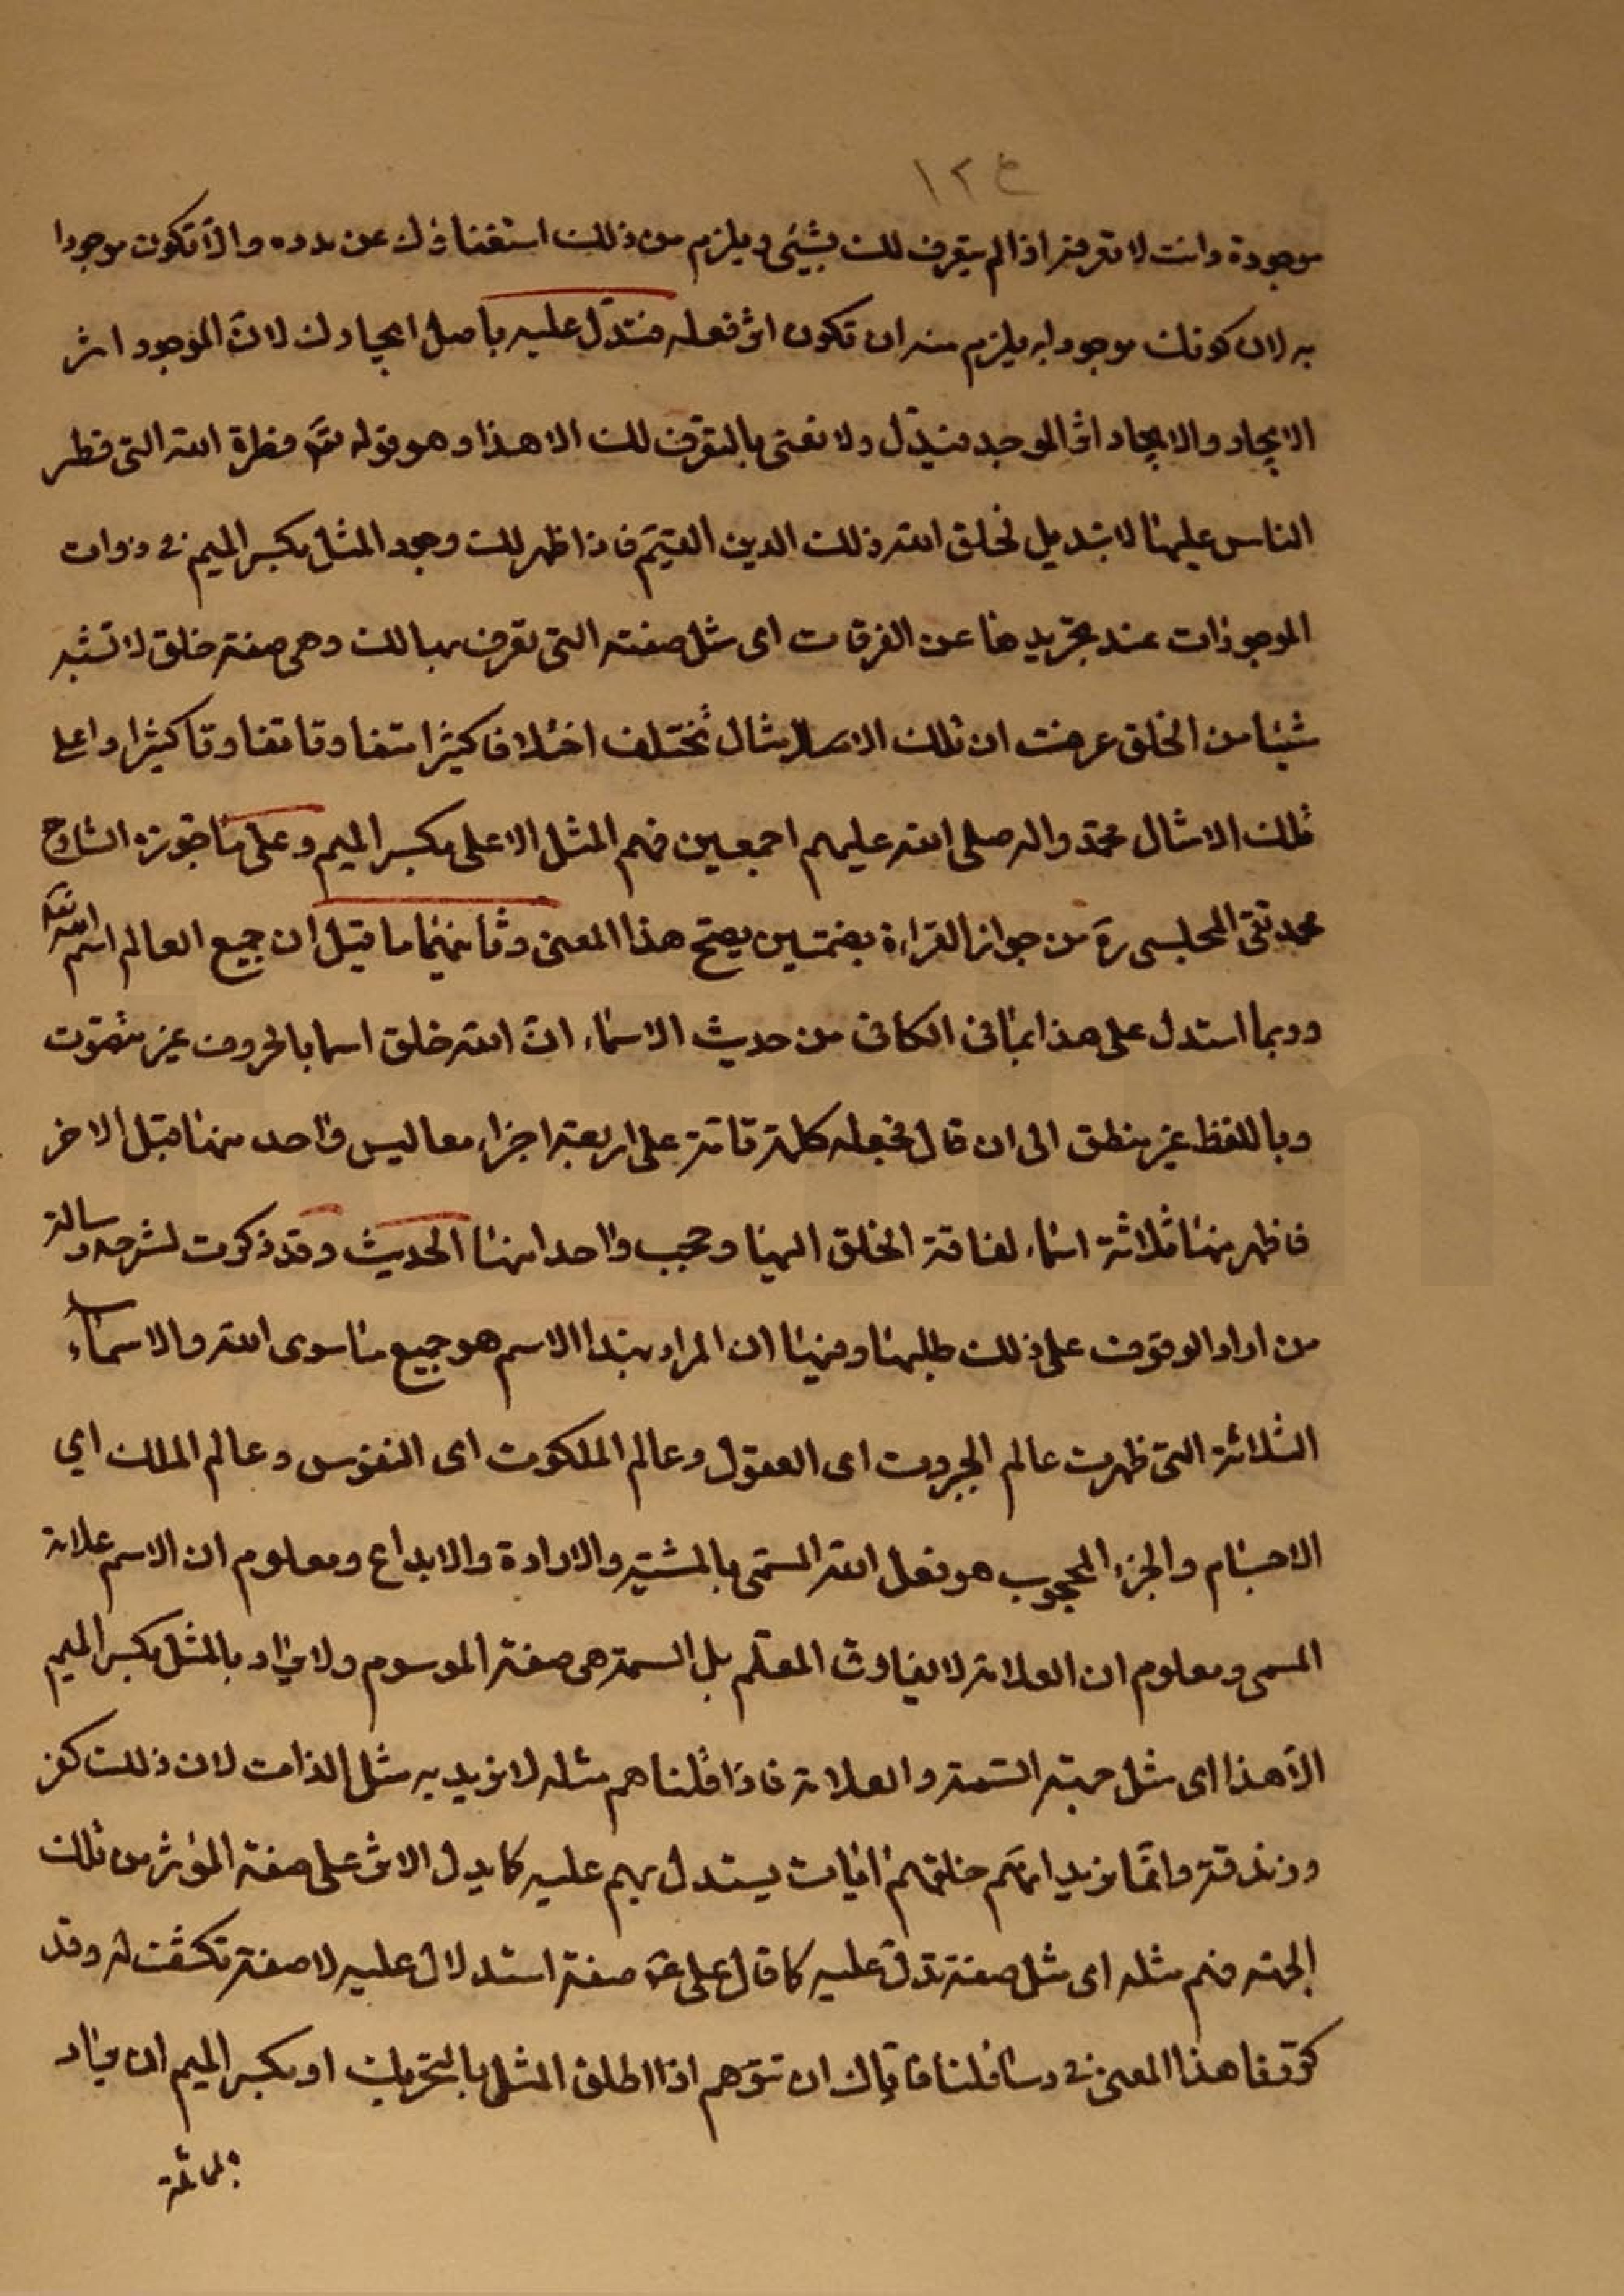 ١٢٤
موجودة وانت لا تعرفه اذا لم يتعرف لك بشيئ ويلزم من ذلك استغناؤك عن مدده والا تكون موجودا
به لان كونك موجودا به يلزم منه ان تكون اثر فعله فتدل عليه باصل ايجادك لان الموجود اثر
الايجاد والايجاد اثر الموجد فيدل ولا نعنى بالتعرف لك الا هذا وهو قوله تعَ فطرة الله التى فطر
الناس عليها لا تبديل لخلق الله ذلك الدين القيّم فاذا ظهر لك وجود المثل بكسر الميم فى ذوات
الموجودات عند تجريدها عن الفرقات اى مثل صفته التى تعرف بها لك وهى صفة خلق لا تشبه
شيئا من الخلق عرفت ان تلك الامثال تختلف اختلافا كثيرا متفاوتا تفاوتا كثيرا واعلى
تلك الامثال محمّد واله صلى الله عليهم اجمعين فهم المثل الاعلى بكسر الميم وعلى ما جوزه الشارح
محمد تقى المجلسى رَه من جواز القراءة بضمتين يصحّ هذا المعنى وثانيهما ما قيل ان جميع العالم اسم الله تعَ
وربما استدل على هذا بما فى الكافى من حديث الاسماء انّ الله خلق اسما بالحروف غير متصوّت
وباللفظ غير منطق الى ان قال فجعله كلمة تامّة على اربعة اجزاء معا ليس واحد منها قبل الاخر
فاظهر منها ثلاثة اسماء لفاقة الخلق اليها وحجب واحدا منها الحديث وقد ذكرت لشرحه رسالة
من اراد الوقوف على ذلك طلبها وفيها ان المراد بهذا الاسم هو جميع ما سوى الله والاسماء
الثلاثة التى ظهرت عالم الجبروت اى العقول وعالم الملكوت اى النفوس وعالم الملك اي
الاجسام والجزء المحجوب هو فعل الله المسمّى بالمشيّة والارادة والابداع ومعلوم ان الاسم علامة
المسمى ومعلوم ان العلامة لا تفاوت المعلّم بل السمة هى صفة الموسوم ولا يراد بالمثل بكسر الميم
الاّ هذا اى مثل جهة السّمة والعلامة فاذا قلنا هم مثله لا نريد به مثل الذات لان ذلك كفر
وزندقة وانّما نريد انهّم خلقهم ايات يستدل بهم عليه كما يدل الاثر على صفة المؤثر من تلك
الجهة فهم مثله اى مثل صفة تدلّ عليه كما قال على عَ صفة استدلال عليه لا صفة تكشف له وقد
كرّرنا هذا المعنى فى رسائلنا فايّاك ان تتوّهم اذا اطلق المثل بالتحريك او بكسر الميم ان يراد
به المماثلة